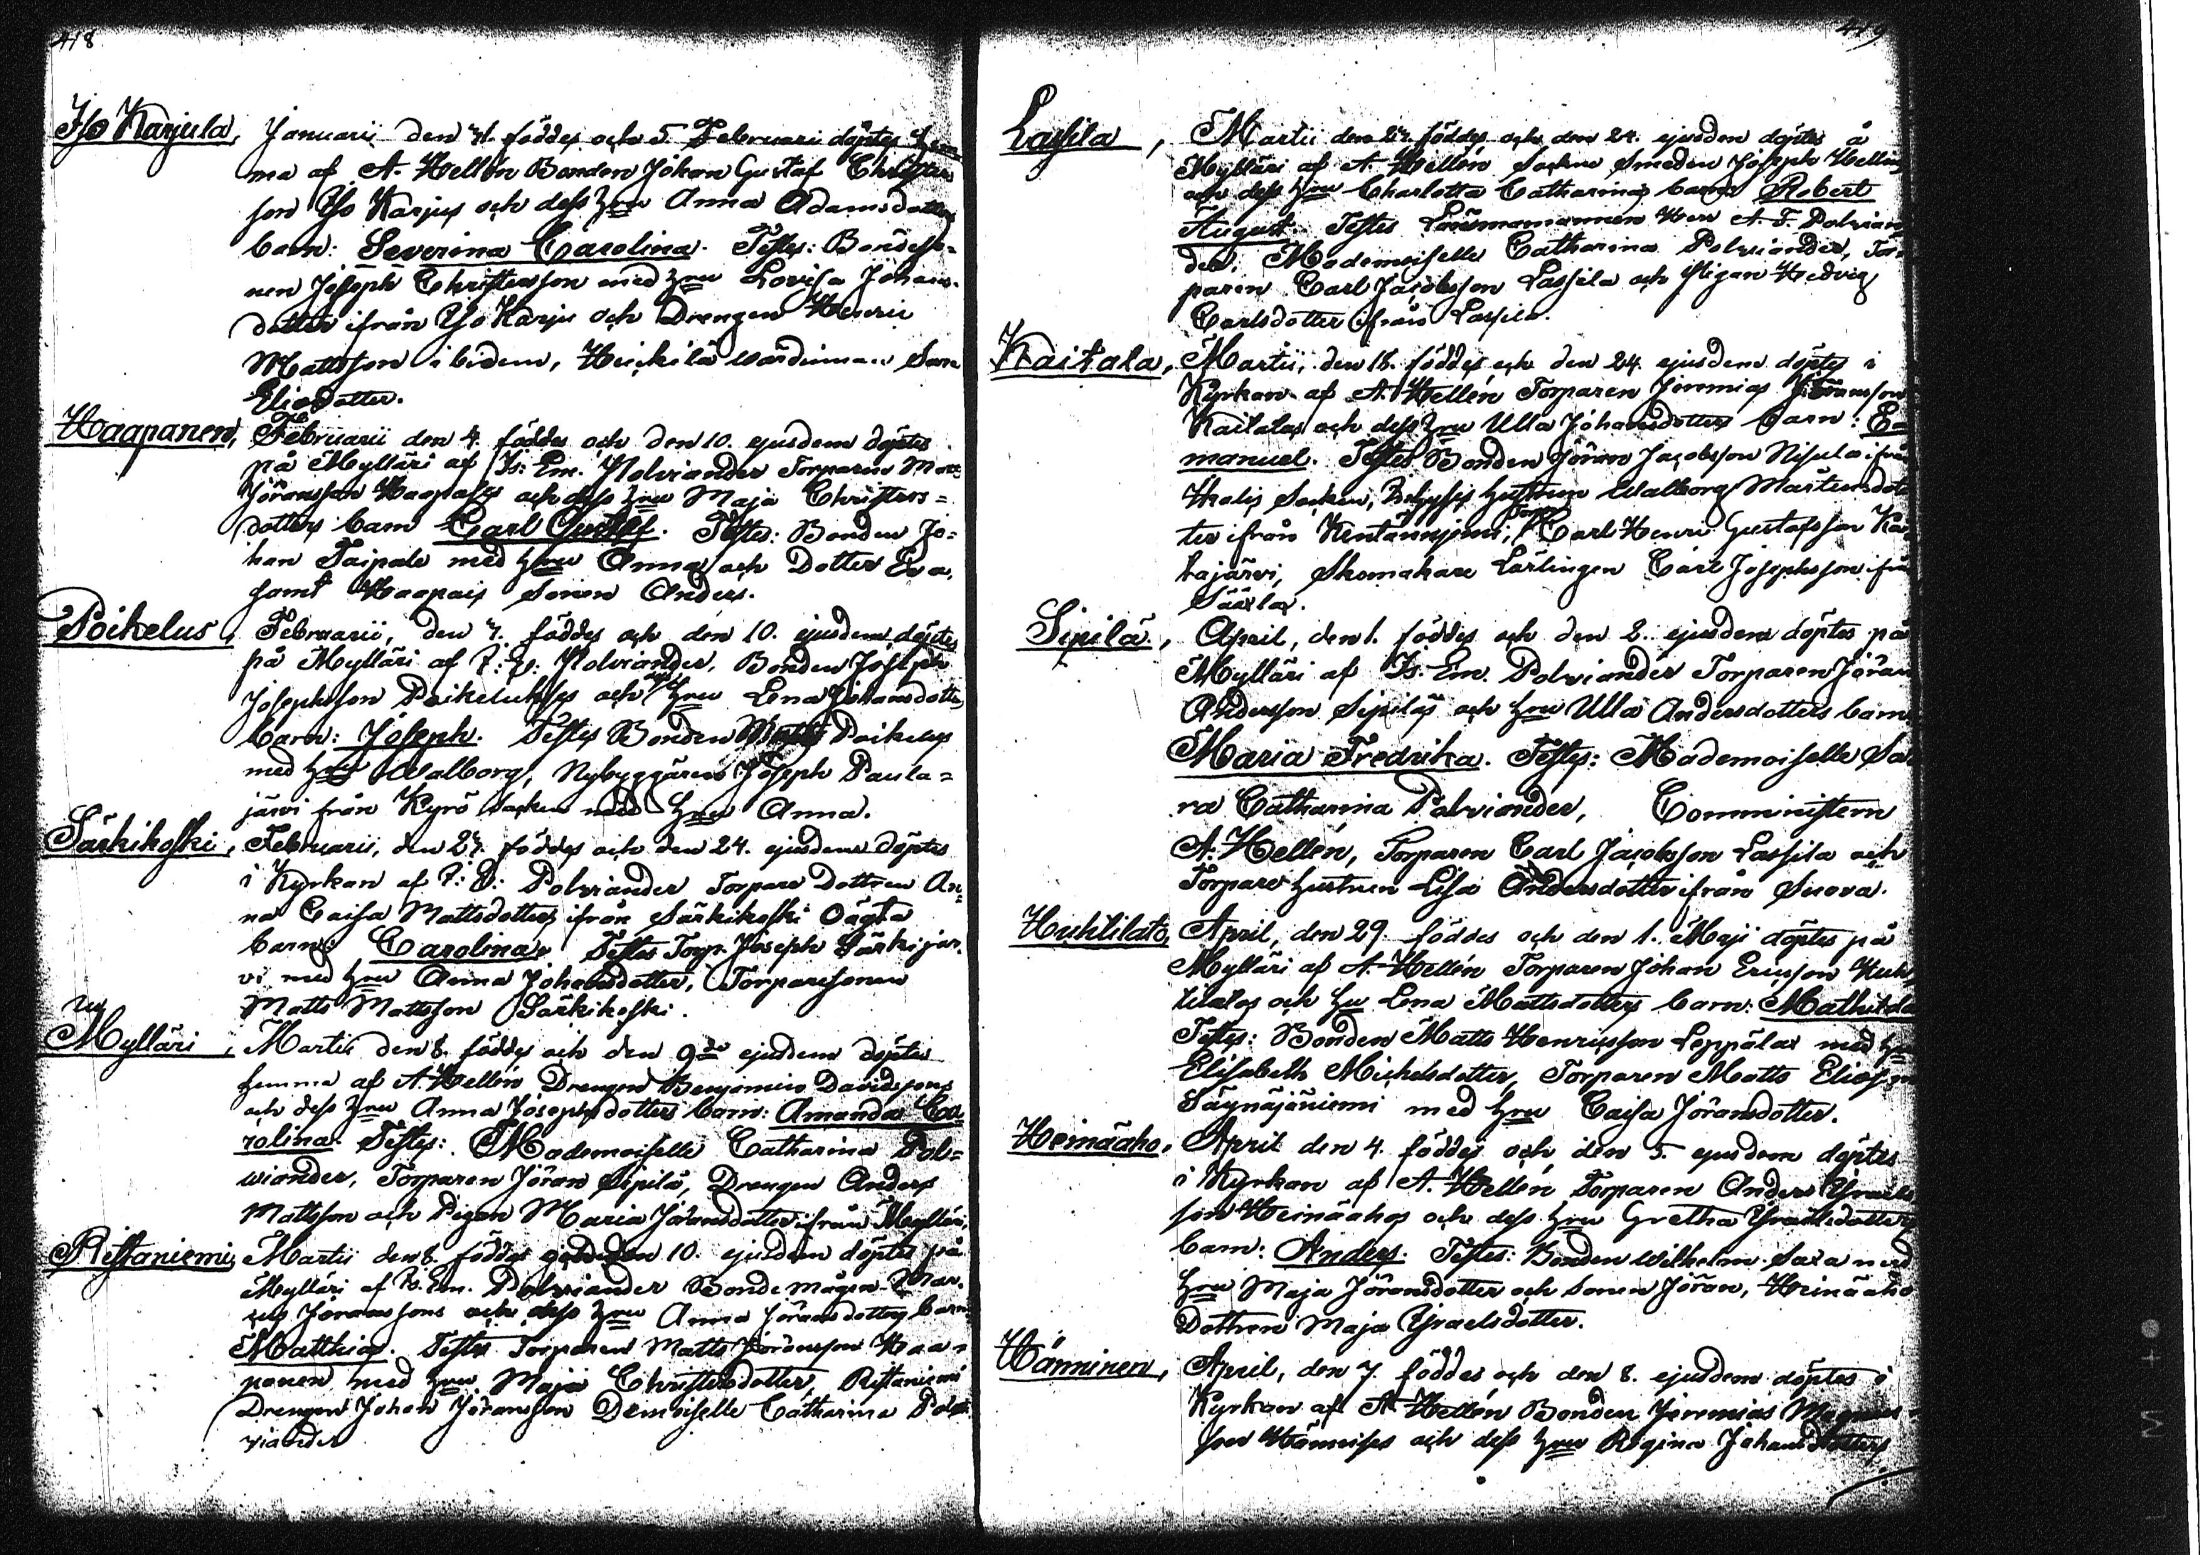 418
Iso Karjula, Januarii den 31. föddes och 5. Februari döptes hem
ma af A. Hellén Bonden Johan Gustaf Christers
son Iso Karjus och dess hru Anna Adamsdotters
barn: Severina Carolina. Testes: Bondeso=
nen Joseph Christersson med hru Lovisa Johans-
dotter ifrån Iso Karju och Drengen Henric
Mattsson ibidem, Heickilä wärdinnan Sara
Eliedotter.
Haapanen, Februarii den 4. föddes och den 10. ejusdem döptes
på Mylläri af Is: Em. Polviander Torparen Matts
Jöransson Haapases och dess hru Maja Christers=
dotters barn Carl Gustaf. Testes: Bonden Jo=
han Taipale med hru Anna och Dotter Eva,
samt Haapais Sonen Anders.
Poikelus, Februarii, den 7. föddes och den 10. ejusdem döptes
på Mylläri af Polviander, Bonden Joseph
Josephsson Poikeluses och dess hru Lena Johansdotters
barn: Joseph. Testes Bonden Matts Poikelus
med hru Walborg, Nybyggaren Joseph Paula=
järvi från Kyrö socken med hru Anna.
Särkikoski, Februarii, den 23. föddes och den 24. ejusdem döptes
i Kyrkan af Polviander Torpare Dottren An=
na Caisa Mattsdotters ifrån Särkikoski Oägta
barn: Carolina. Testes Torp. Joseph Särkijär-
vi med hru Anna Johansdotter, Torparesonen
Matts Mattsson Särkikoski.
Mylläri, Martii den 8. föddes och den 9de ejusdem döptes
hemma af A. Hellén Drengen Benjamin Davidssons
och dess hru Anna Josephsdotters barn: Amanda Ca
rolina. Testes: Mademoiselle Catharina Pol=
wiander, Torparen Jöran Sipilä, Drengen Anders
Mattsson och Pigan Maria Jöransdotter ifrån Mylläri.
Ristaniemi, Martii den 8. föddes och den 10. ejusdem döptes på
Mylläri af Is. Em. Polviander Bonde mågen Mar-
cus Jöranssons och dess hru Anna Jöransdotters barn
Matthias. Testes Torparen Matts Jöransson Haa=
panen med hru Maja Christersdotter, Ristaniemi
Drengen Johan Jöransson Demoiselle Catharina Pol
viander
419
Lassila, Martii den 23. föddes och den 24. ejusdem döptes å
Mylläri af A. Hellén Sockne Smeden Joseph Hellins
och dess hru Charlotta Catharinas barn Robert
August. Testes Länsmannen Herr A. F. Polvian
der, Mademoiselle Catharina Polviander, Tor-
paren Carl Jacobsson Lassila och Pigan Hedvig
Carlsdotter ifrån Lassila.
Kaitala, Martii, den 18. föddes och den 24. ejusdem döptes i
Kyrkan af A. Hellén Torparen Jeremias Jöransson
Kaitalas och dess hru Ulla Johansdotters barn: Em
manuel. Testes Bonden Jöran Jacobsson Nisula ifrån
Ikalis Socken, hustrun Walborg Mårtensdot
ter ifrån Kentänniemi, Carl Henric Gustafsson Ka
tajärvi, Skomakare Lärlingen Carl Josephsson ifrån
Säkylä.
Sipilä, April, den 1. föddes och den 2. ejusdem döptes på
Mylläri af Is. Em. Polviander Torparen Jöran
Andersson Sipiläs och hru Ulla Andersdotters barn
Maria Fredrika. Testes: Mademoiselle Sa
ra Catharina Polviander, Comministern
A. Hellén, Torparen Carl Jacobsson Lassila och
Torpare hustrun Lisa Andersdotter ifrån Suova.
Huhtilato, April, den 29. föddes och den 1. Maji döptes på
Mylläri af A. Hellén Torparen Johan Ericsson Huh
tilatos och hru Lena Mattsdotters barn: Mathilda
Testes: Bonden Matts Henricsson Leppälax med hru
Elisabeth Michelsdotter, Torparen Matts Eliasson
Säynäjäniemi med hru Caisa Jöransdotter.
Heinäaho, April den 4. föddes och den 5. ejusdem döptes
i Kyrkan af A. Hellén Torparen Anders Israels
son Heinäahos och dess hru Gretha Israelsdotters
barn: Anders. Testes: Bonden Wilhelm Saxa med
hru Maja Jöransdotter och Sonen Jöran, Heinäaho
Dottren Maja Israelsdotter.
Hänninen, April, den 7. föddes och den 8. ejusdem döptes i
Kyrkan af A. Hellén Bonden Jeremias Magnus
son Hännises och dess hru Regina Johansdotters